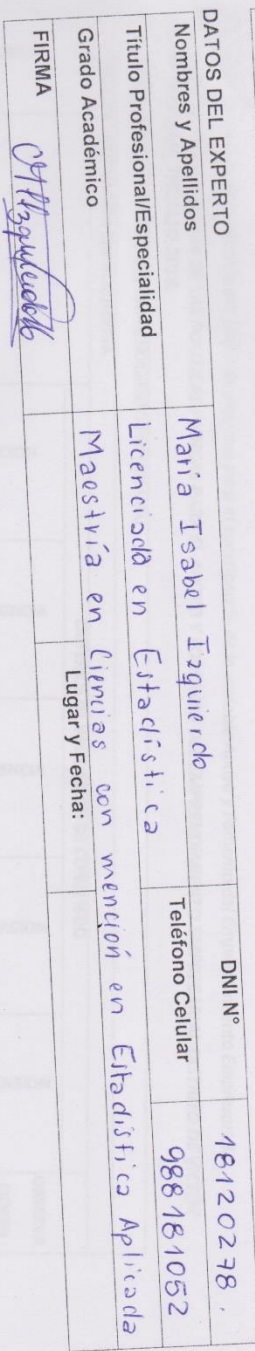 DATOS DEL EXPERTO
Nombres y Apellidos María Isabel Izquierdo DNI N° 18120278.
Título Profesional/Especialidad Licenciada en Estadística Teléfono Celular 988181052
Grado Académico Maestría en Ciencias con mención en Estadística Aplicada
FIRMA Lugar y Fecha: